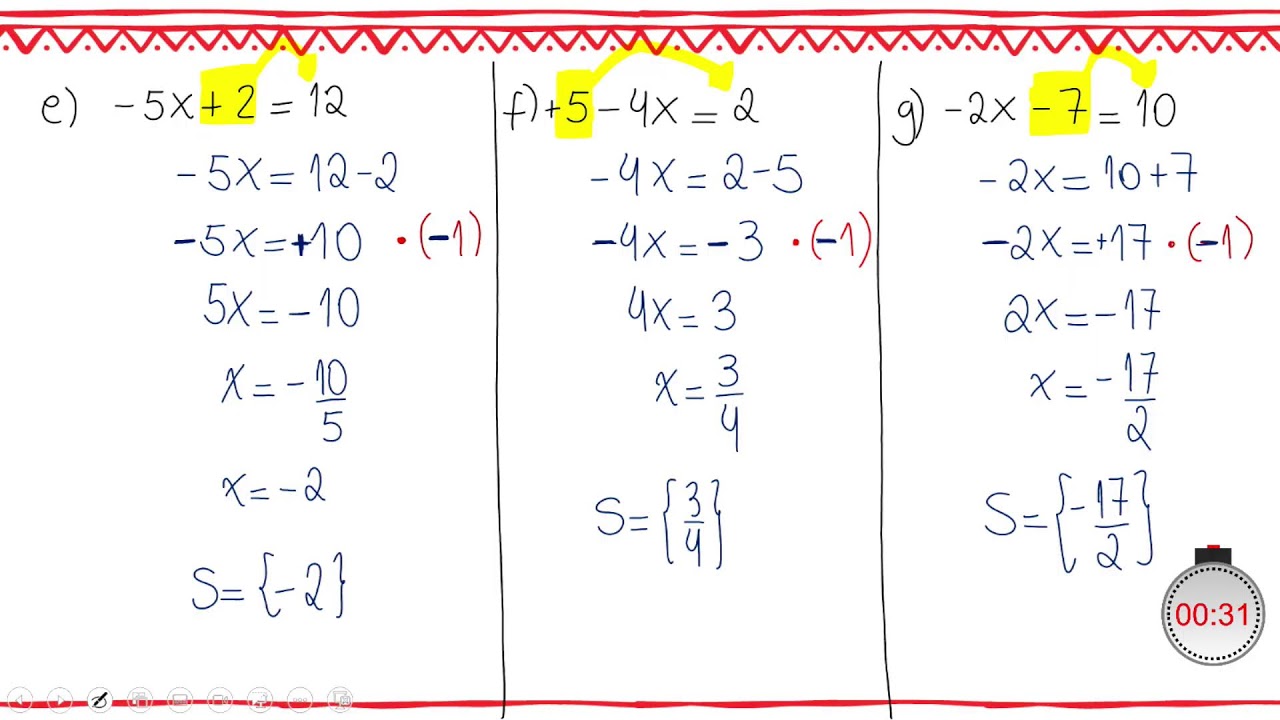 e) -5x + 2 = 12
-5x = 12 - 2
-5x = +10 · (-1)
5x = -10
x = -10/5
x = -2
S = {-2}
f) +5 - 4x = 2
-4x = 2 - 5
-4x = -3 · (-1)
4x = 3
x = 3/4
S = {3/4}
g) -2x - 7 = 10
-2x = 10 + 7
-2x = +17 · (-1)
2x = -17
x = -17/2
S = {-17/2}
00:31